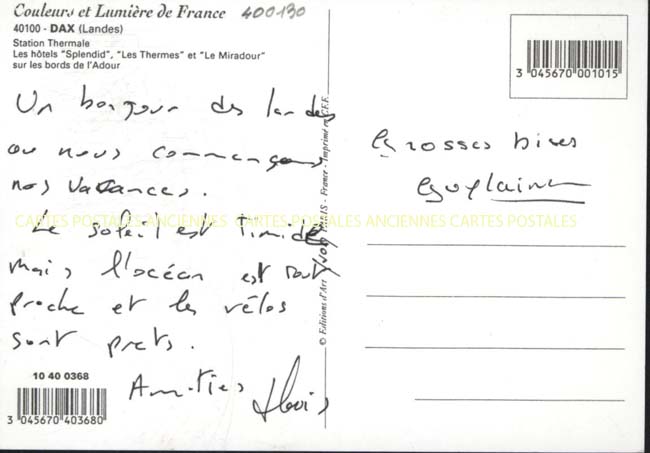 Couleurs et Lumière de France 400130
40100 - DAX (Landes)
Station Thermale
Les hôtels "Splendid", "Les Thermes" et "Le Miradour"
sur les bords de l'Adour
3 045670 001015
Un bonjour des landes
ou nous commençons
nos vacances.
Le soleil est timide
mais l'océan est tout
proche et les vélos
sont prets.
Amities
10 40 0368
3 045670 403680
© Editions d'Art - France - Imprimé en C.E.E.
Grosses bises
CARTES POSTALES ANCIENNES CARTES POSTALES ANCIENNES CARTES POSTALES